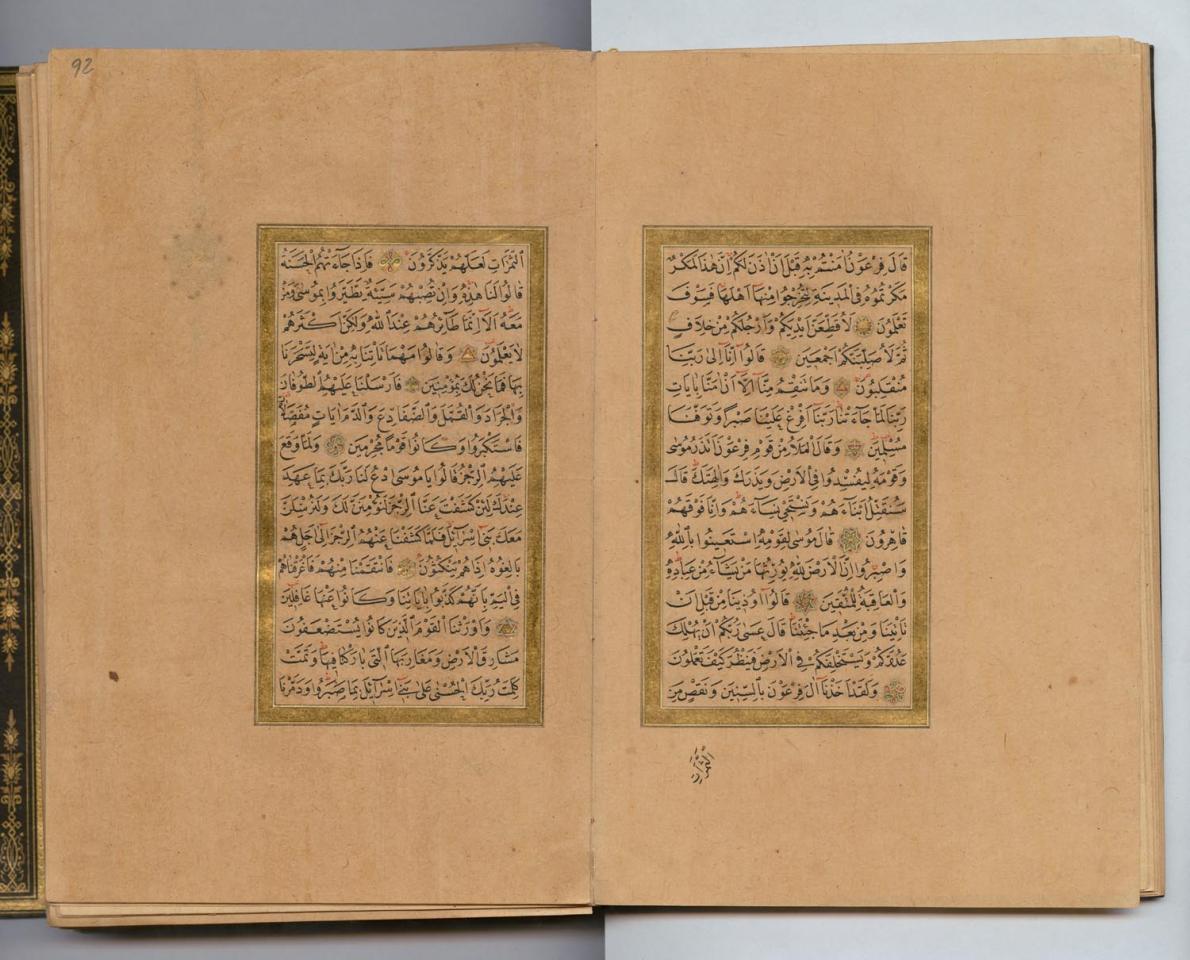 قَالَ فِرْعَوْنُ اٰمَنْتُمْ بِهِ قَبْلَ اَنْ اٰذَنَ لَكُمْ اِنَّ هٰذَا لَمَكْرٌ
مَكَرْتُمُوهُ فِي الْمَدِينَةِ لِتُخْرِجُوا مِنْهَا اَهْلَهَا فَسَوْفَ
تَعْلَمُونَ لَاُقَطِّعَنَّ اَيْدِيَكُمْ وَاَرْجُلَكُمْ مِنْ خِلَافٍ
ثُمَّ لَاُصَلِّبَنَّكُمْ اَجْمَعِينَ قَالُوا اِنَّا اِلٰى رَبِّنَا
مُنْقَلِبُونَ وَمَا تَنْقِمُ مِنَّا اِلَّا اَنْ اٰمَنَّا بِاٰيَاتِ
رَبِّنَا لَمَّا جَاءَتْنَا رَبَّنَا اَفْرِغْ عَلَيْنَا صَبْرًا وَتَوَفَّنَا
مُسْلِمِينَ وَقَالَ الْمَلَاُ مِنْ قَوْمِ فِرْعَوْنَ اَتَذَرُ مُوسٰى
وَقَوْمَهُ لِيُفْسِدُوا فِي الْاَرْضِ وَيَذَرَكَ وَاٰلِهَتَكَ قَالَ
سَنُقَتِّلُ اَبْنَاءَهُمْ وَنَسْتَحْيِي نِسَاءَهُمْ وَاِنَّا فَوْقَهُمْ
قَاهِرُونَ قَالَ مُوسٰى لِقَوْمِهِ اسْتَعِينُوا بِاللّٰهِ
وَاصْبِرُوا اِنَّ الْاَرْضَ لِلّٰهِ يُورِثُهَا مَنْ يَشَاءُ مِنْ عِبَادِهِ
وَالْعَاقِبَةُ لِلْمُتَّقِينَ قَالُوا اُوذِينَا مِنْ قَبْلِ اَنْ
تَأْتِيَنَا وَمِنْ بَعْدِ مَا جِئْتَنَا قَالَ عَسٰى رَبُّكُمْ اَنْ يُهْلِكَ
عَدُوَّكُمْ وَيَسْتَخْلِفَكُمْ فِي الْاَرْضِ فَيَنْظُرَ كَيْفَ تَعْمَلُونَ
وَلَقَدْ اَخَذْنَا اٰلَ فِرْعَوْنَ بِالسِّنِينَ وَنَقْصٍ مِنَ
الثَّمَرَاتِ
92
الثَّمَرَاتِ لَعَلَّهُمْ يَذَّكَّرُونَ فَاِذَا جَاءَتْهُمُ الْحَسَنَةُ
قَالُوا لَنَا هٰذِهِ وَاِنْ تُصِبْهُمْ سَيِّئَةٌ يَطَّيَّرُوا بِمُوسٰى وَمَنْ
مَعَهُ اَلَا اِنَّمَا طَائِرُهُمْ عِنْدَ اللّٰهِ وَلٰكِنَّ اَكْثَرَهُمْ
لَا يَعْلَمُونَ وَقَالُوا مَهْمَا تَأْتِنَا بِهِ مِنْ اٰيَةٍ لِتَسْحَرَنَا
بِهَا فَمَا نَحْنُ لَكَ بِمُؤْمِنِينَ فَاَرْسَلْنَا عَلَيْهِمُ الطُّوفَانَ
وَالْجَرَادَ وَالْقُمَّلَ وَالضَّفَادِعَ وَالدَّمَ اٰيَاتٍ مُفَصَّلَاتٍ
فَاسْتَكْبَرُوا وَكَانُوا قَوْمًا مُجْرِمِينَ وَلَمَّا وَقَعَ
عَلَيْهِمُ الرِّجْزُ قَالُوا يَا مُوسَى ادْعُ لَنَا رَبَّكَ بِمَا عَهِدَ
عِنْدَكَ لَئِنْ كَشَفْتَ عَنَّا الرِّجْزَ لَنُؤْمِنَنَّ لَكَ وَلَنُرْسِلَنَّ
مَعَكَ بَنِي اِسْرَائِيلَ فَلَمَّا كَشَفْنَا عَنْهُمُ الرِّجْزَ اِلٰى اَجَلٍ هُمْ
بَالِغُوهُ اِذَا هُمْ يَنْكُثُونَ فَانْتَقَمْنَا مِنْهُمْ فَاَغْرَقْنَاهُمْ
فِي الْيَمِّ بِاَنَّهُمْ كَذَّبُوا بِاٰيَاتِنَا وَكَانُوا عَنْهَا غَافِلِينَ
وَاَوْرَثْنَا الْقَوْمَ الَّذِينَ كَانُوا يُسْتَضْعَفُونَ
مَشَارِقَ الْاَرْضِ وَمَغَارِبَهَا الَّتِي بَارَكْنَا فِيهَا وَتَمَّتْ
كَلِمَتُ رَبِّكَ الْحُسْنٰى عَلٰى بَنِي اِسْرَائِيلَ بِمَا صَبَرُوا وَدَمَّرْنَا